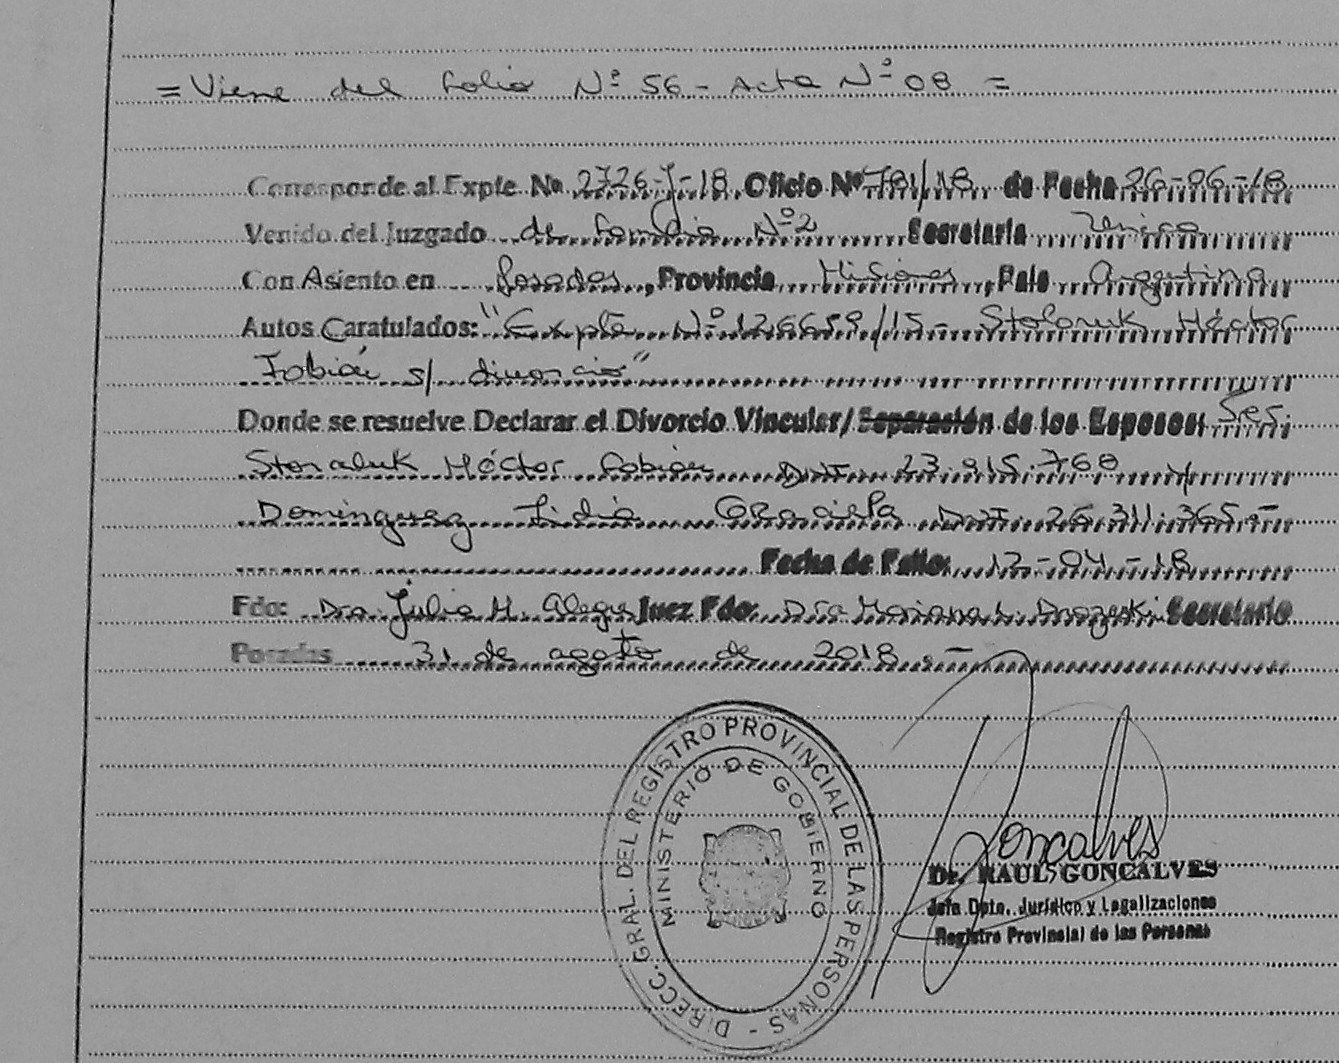 = Viene del folio Nº 56 - Acta Nº 08 =
Corresponde al Expte Nº 2726-J-18. Oficio Nº 781/18 de Fecha 26-06-18
Venido del Juzgado de Familia Nº2 Secretaria Unica
Con Asiento en Posadas, Provincia Misiones, País Argentina
Autos Caratulados: "Expte Nº 126659/15 - Héctor
Fabián s/ divorcio"
Donde se resuelve Declarar el Divorcio Vincular/Separación de los Esposos: Sres.
Héctor Fabián DNI. 23.915.768 y
Dominguez Lidia Graciela DNI. 26.311.365.-
Fecha de Fallo: 12-04-18
Fdo: Dra. Julia M. Alegre Juez Fdo: Dra Mariana L. Secretario
Posadas 31 de agosto de 2018.-
DIRECC. GRAL. DEL REGISTRO PROVINCIAL DE LAS PERSONAS -
MINISTERIO DE GOBIERNO
Goncalves
Dr. RAUL GONCALVES
Jefe Dpto. Jurídico y Legalizaciones
Registro Provincial de las Personas